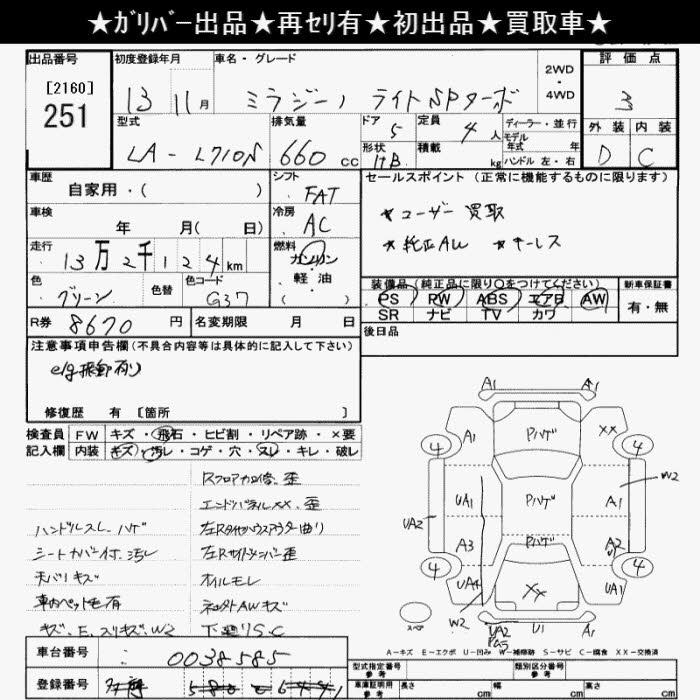 ★ｶﾞﾘﾊﾞｰ出品★再ｾﾘ有★初出品★買取車★
出品番号
[2160]
251
初度登録年月
13 11月
車名・グレード
ミラジーノ ライトSPターボ
2WD
・
4WD
評価点
3
外装 内装
D C
型式
LA-L710S
排気量
660 cc
ドア 5
形状 HB
定員 4 人
積載 kg
ディーラー・並行
モデル
年式 年
ハンドル 左・右
車歴
自家用・( )
シフト
FAT
セールスポイント (正常に機能するものに限ります)
★ユーザー買取
★純正AW ★キーレス
車検
年 月( 日)
冷房
AC
走行
13万2千124km
燃料
ガソリン
軽油
( )
色
グリーン
色替
色コード
G37
装備品(純正品に限り○をつけてください)
PS PW ABS エアB AW
SR ナビ TV カワ
新車保証書
有・無
R券 8670 円
名変期限 月 日
後日品
注意事項申告欄(不具合内容等は具体的に記入して下さい)
e/g振動有り
修復歴 有 [箇所 ]
検査員
記入欄
FW キズ・飛石・ヒビ割・リペア跡・×要
内装 キズ・汚レ・コゲ・穴・スレ・キレ・破レ
エンドパネルXX、歪
ハンドルスレ、ハゲ
シートカバー付、汚レ
左Rサイドメンバー歪
天バリキズ
オイルモレ
車内ペット毛有
社外AWキズ
下廻りS.C
A1
A1
A1
XX
4
4
Pハゲ
UA1
Pハゲ
A1
W2
UA2
A3
Pハゲ
A2
4
4
UA4
XX
UA1
W2
UA2
U1
A1
スペア
A-キズ E-エクボ U-凹み W-補修跡 S-サビ C-腐食 XX-交換済
車台番号
0038585
登録番号
型式指定番号
参考
類別区分番号
参考
車庫証明用
参考
長さ cm
幅 cm
高さ cm